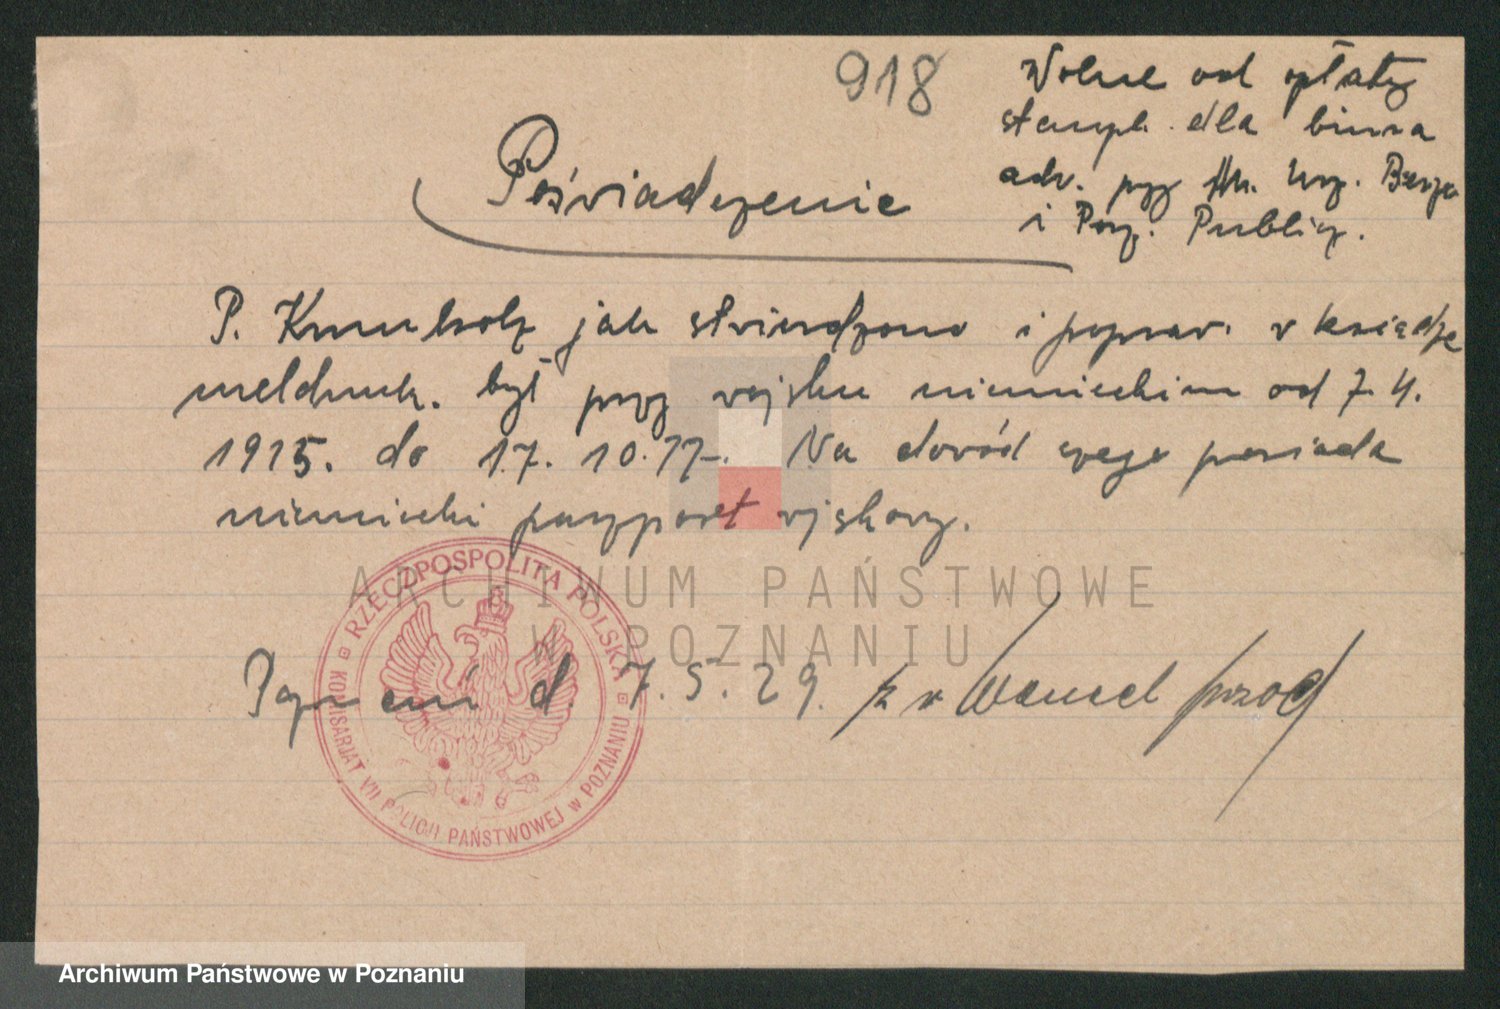 918
Wolne od opłaty
stempl. dla biura
adr. przy Urz. Bezp.
i Porz. Publicz.
Poświadczenie
P. Krumholz jak stwierdzono i popraw. w książce
meldunk. był przy wojsku niemieckim od 7.4.
1915. do 17. 10. 17. Na dowód czego posiada
niemiecki paszport wojskowy.
ARCHIWUM PAŃSTWOWE
W POZNANIU
RZECZPOSPOLITA POLSKA
KOMISARJAT VII POLICJI PAŃSTWOWEJ w POZNANIU
Poznań d. 7.5.29. przod
Archiwum Państwowe w Poznaniu